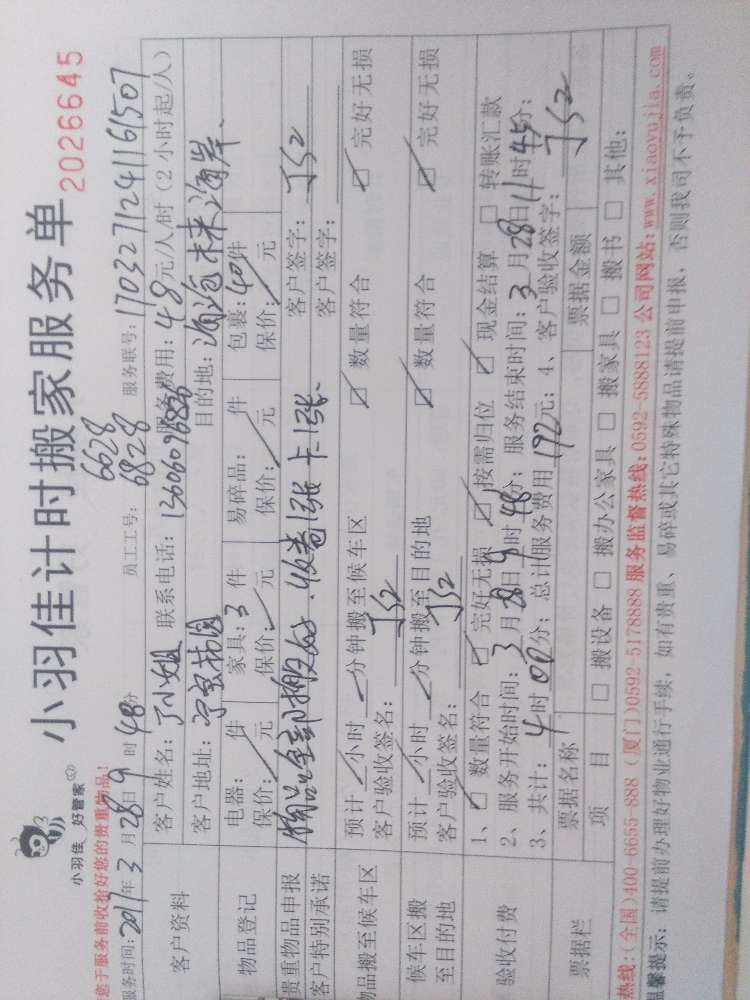 小羽佳 好管家
小羽佳计时搬家服务单
2026645
您于服务前收拾好您的贵重物品!
6628
服务时间:2017年3月28日9时48分 员工工号:6828 服务联号:1703271241161507
客户资料
客户姓名:丁小姐 联系电话:13606096886 服务费用:48元/人/时(2小时起/人)
客户地址: 目的地:海沧未来海岸
物品登记
电器: 件 家具:3件 易碎品: 件 包裹:40件
保价: 元 保价: 元 保价: 元 保价: 元
贵重物品申报 物品全部搬好.收卷1张卡1张. 客户签字:
客户特别承诺 客户签字:
物品搬至候车区
预计 小时 分钟搬至候车区 数量符合 完好无损
客户验收签名:
候车区搬至目的地
预计 小时 分钟搬至目的地 数量符合 完好无损
客户验收签名:
验收付费
1、 数量符合 完好无损 按需归位 现金结算 转账汇款
2、服务开始时间:3月28日9时48分;服务结束时间:3月28日11时45分;
3、共计:4时00分;总计服务费用192元;4、客户验收签字:
票据栏
票据名称 票据金额
项 目 搬设备 搬办公家具 搬家具 搬书 其他:
热线:(全国)400-6655-888 (厦门)0592-5178888 服务监督热线:0592-5888123 公司网站:www.xiaoyujia.com
温馨提示:请提前办理好物业通行手续,如有贵重、易碎或其它特殊物品请提前申报,否则我司不予负责。